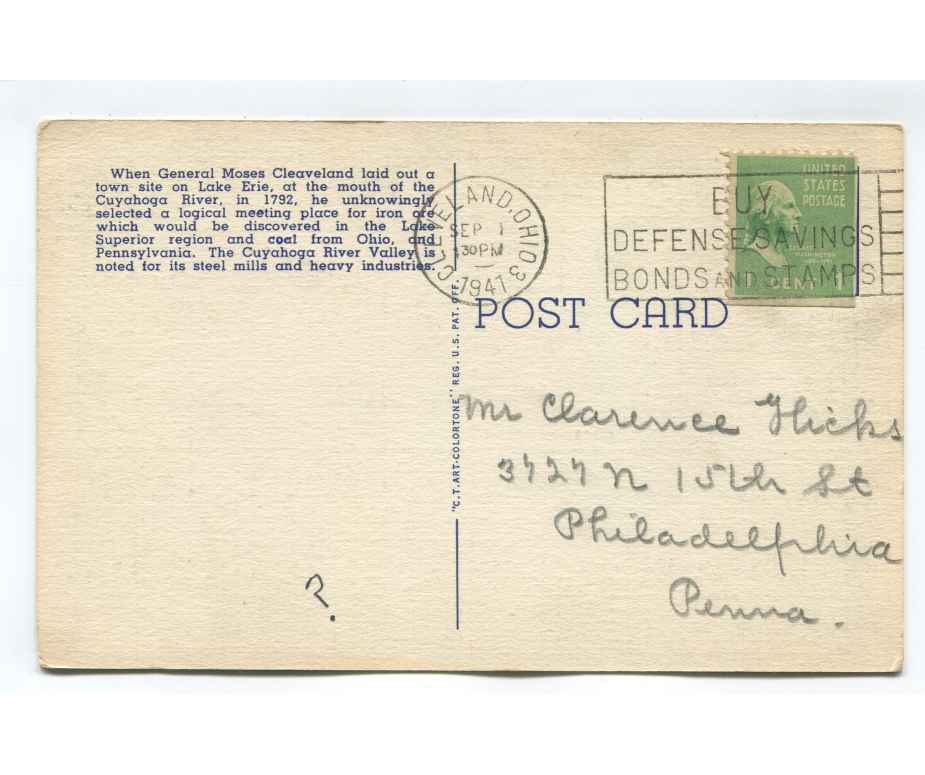 When General Moses Cleaveland laid out a
town site on Lake Erie, at the mouth of the
Cuyahoga River, in 1792, he unknowingly
selected a logical meeting place for iron ore
which would be discovered in the Lake
Superior region and coal from Ohio, and
Pennsylvania. The Cuyahoga River Valley is
noted for its steel mills and heavy industries.
CLEVELAND, OHIO 3
SEP 1
30 PM
1941
BUY
DEFENSE SAVINGS
BONDS AND STAMPS
UNITED
STATES
POSTAGE
WASHINGTON
1 CENT 1
POST CARD
"C.T. ART-COLORTONE," REG. U.S. PAT. OFF.
Mr Clarence Hicks
3727 N 15th St
Philadelphia
Penna.
?